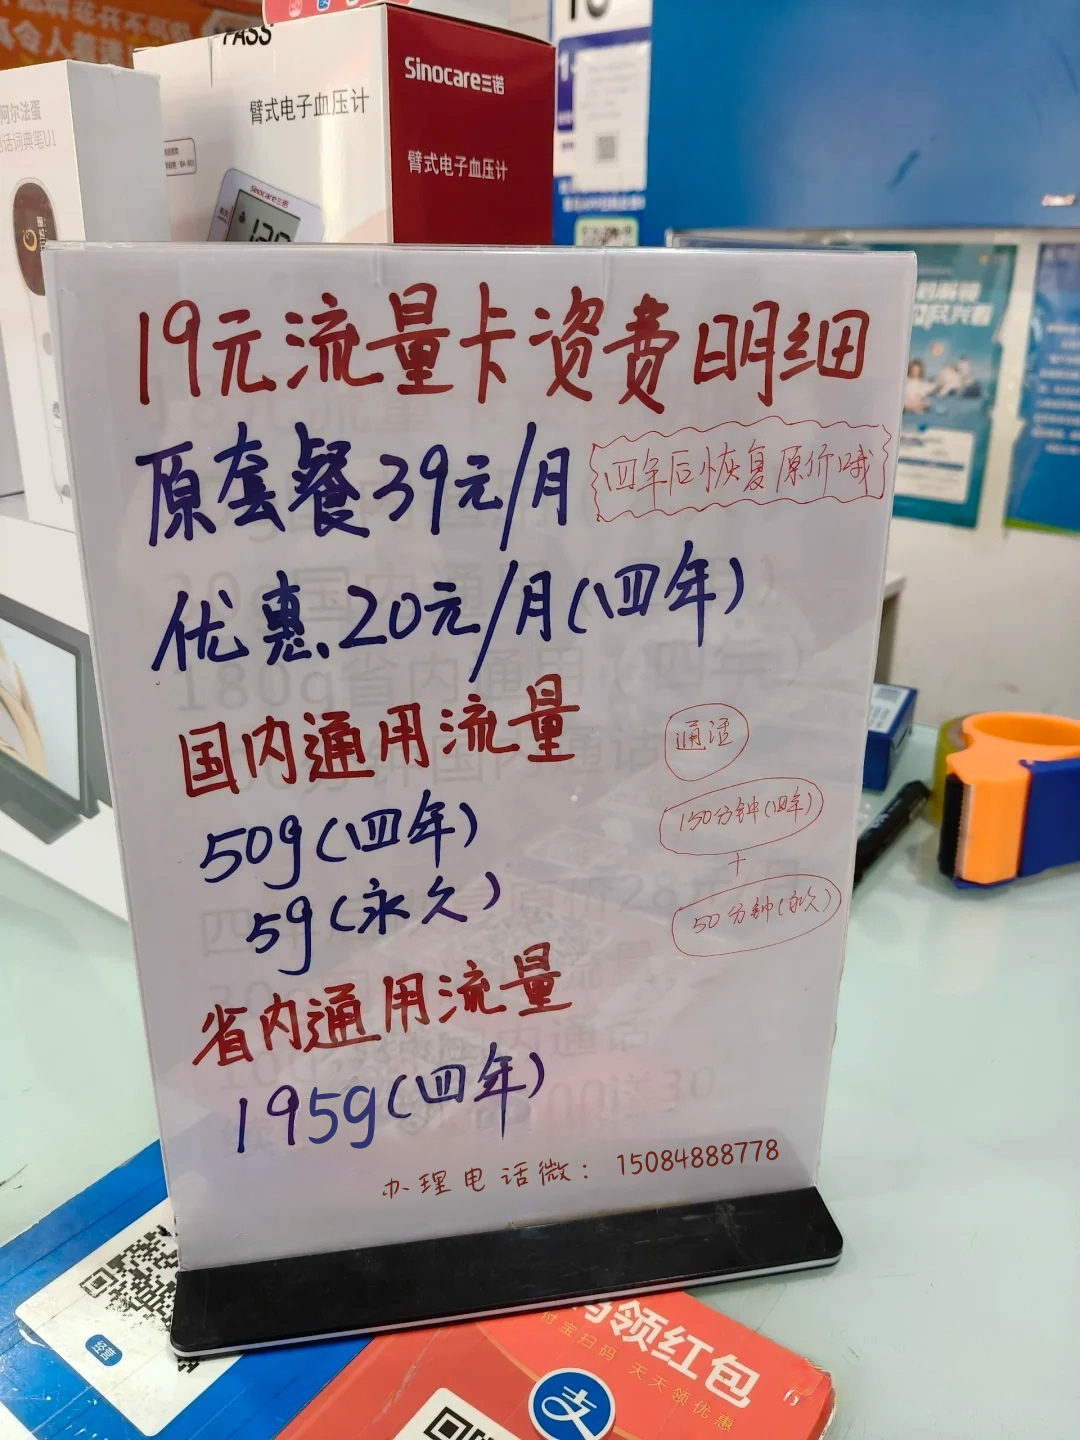 PASS
Sinocare三诺
臂式电子血压计
臂式电子血压计
阿尔法蛋
Sinocare三诺
19元流量卡资费明细
原套餐39元/月
四年后恢复原价哦
优惠.20元/月(四年)
国内通用流量
50g(四年)
5g(永久)
通话
150分钟(四年)
+
50分钟(永久)
省内通用流量
195g(四年)
办理电话微：15084888778
领红包
付宝扫码 天天领优惠
支